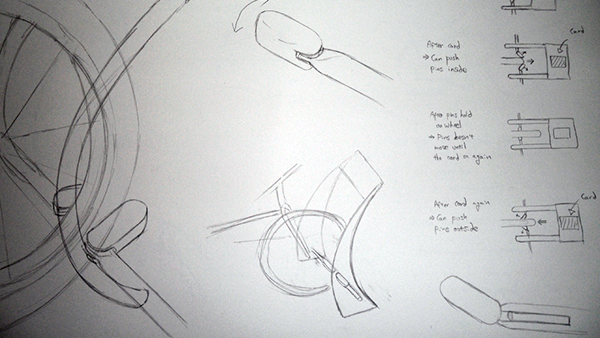 Card
After card
→ Can push
pins inside
After pins hold
on wheel
→ Pins doesn't
move until
the card on again
After card again
→ Can push
pins outside
Card